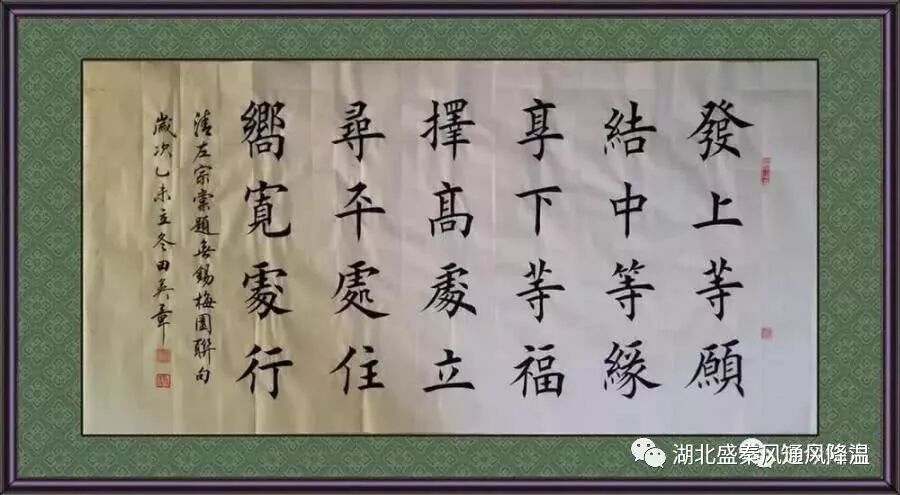 發上等願
結中等緣
享下等福
擇高處立
尋平處住
嚮寬處行
清左宗棠題無錫梅園聯句
歲次乙未立冬田英章
湖北盛秦风通风降温